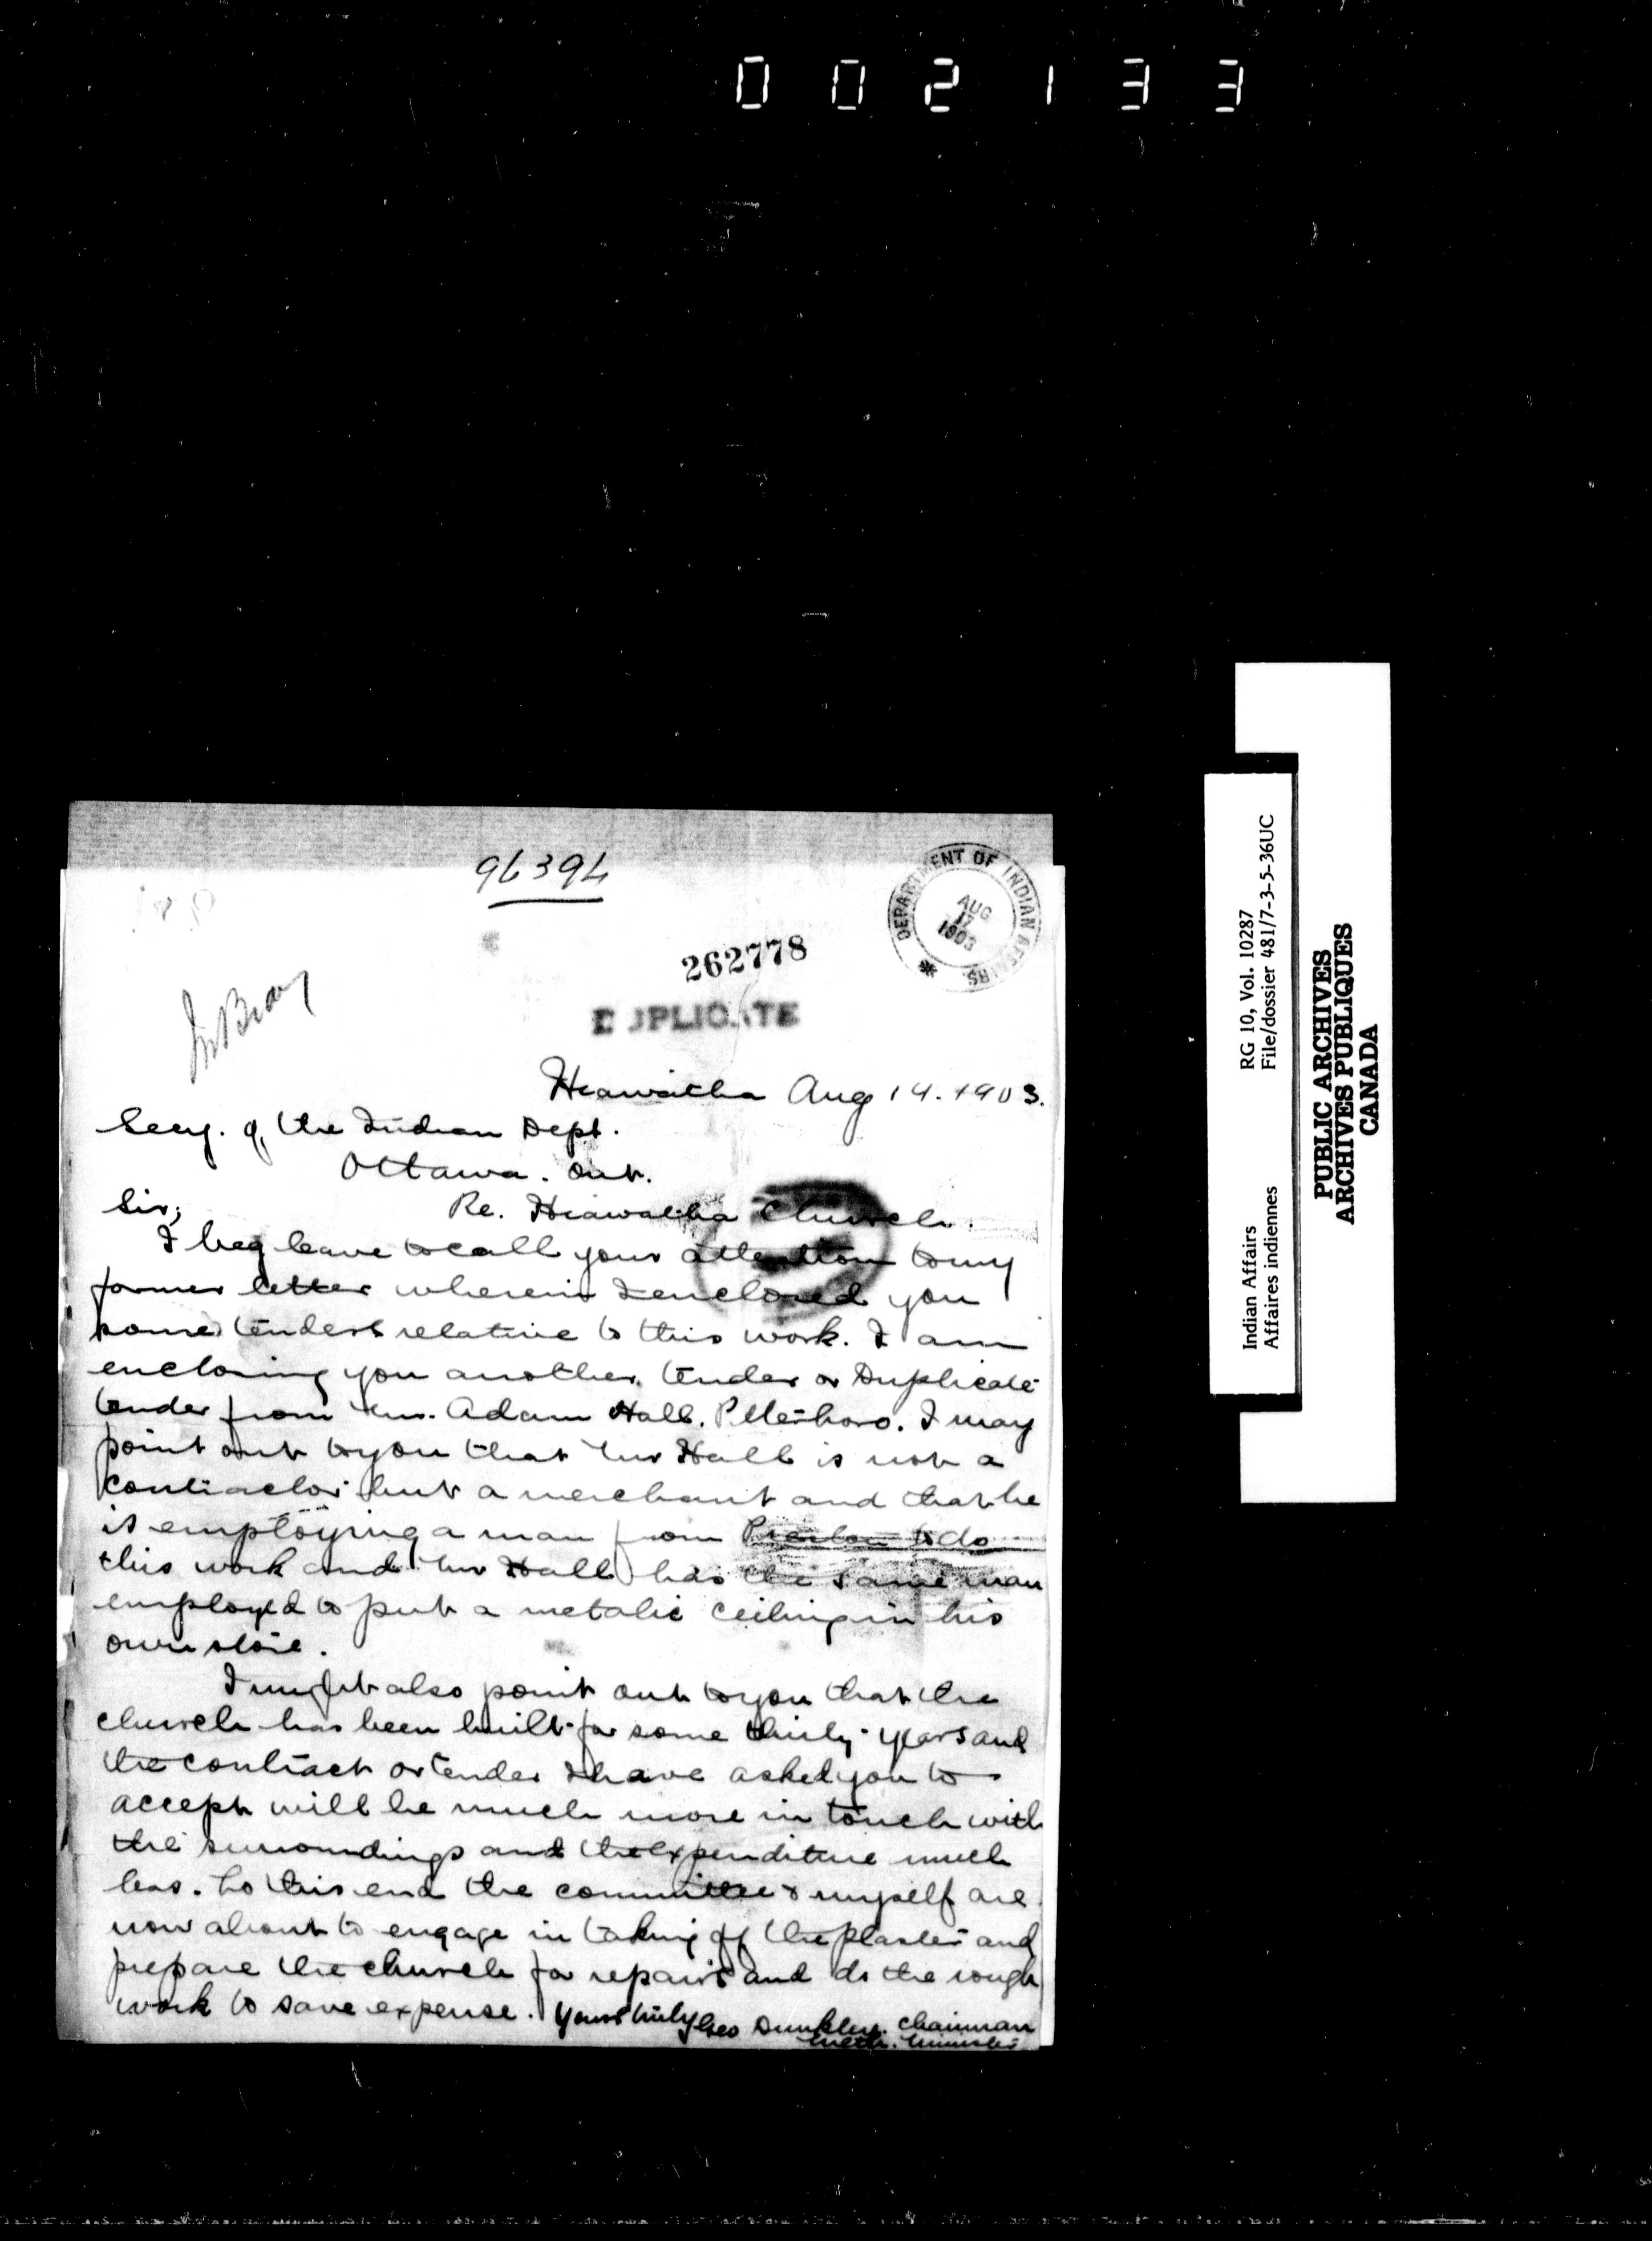 0 0 2 1 3 3
96394
DEPARTMENT OF INDIAN AFFAIRS
AUG
17
1903
262778
DUPLICATE
Hiawatha Aug 14. 1903.
Secy. of the Indian Dept.
Ottawa. Ont.
Sir;
Re. Hiawatha Church.
I beg leave to call your attention to my
former letter wherein I enclosed you
some tenders relative to this work. I am
enclosing you another tender or Duplicate
tender from Mr. Adam Hall. Peterboro. I may
point out to you that Mr Hall is not a
contractor but a merchant and that he
is employing a man from Preston to do
this work and Mr Hall has the same man
employed to put a metalic ceiling in his
own store.
I might also point out to you that the
church has been built for some thirty years and
the contract or tender I have asked you to
accept will be much more in touch with
the surroundings and the expenditure much
less. To this end the committee & myself are
now about to engage in taking off the plaster and
prepare the church for repairs and do the rough
work to save expense. Yours truly Geo Dunkley. Chairman
Meth. Minister
Indian Affairs RG 10, Vol. 10287
Affaires indiennes File/dossier 481/7-3-5-36UC
PUBLIC ARCHIVES
ARCHIVES PUBLIQUES
CANADA